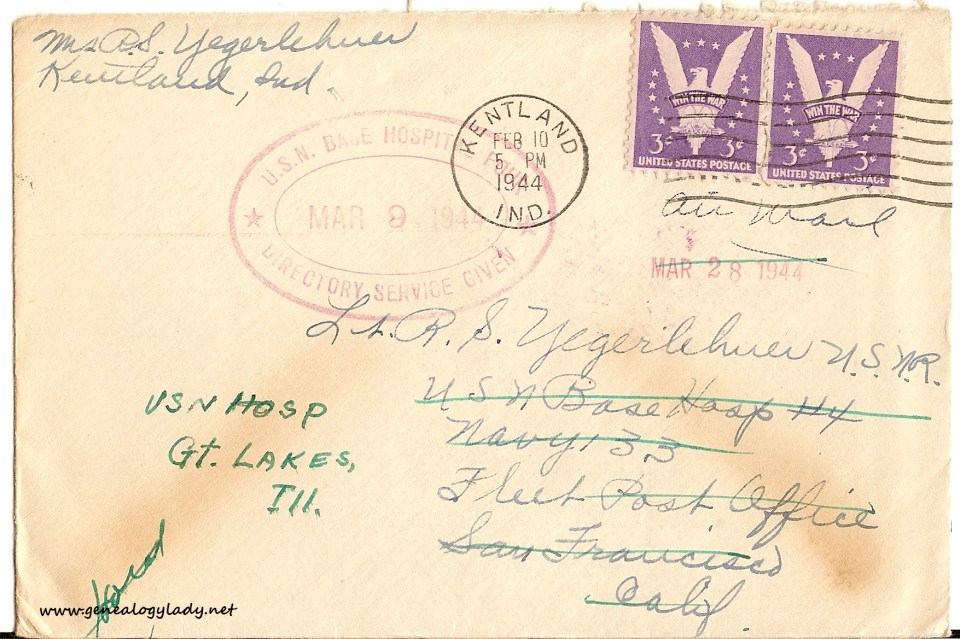 Mrs R.S. Yegerlehner
Kentland, Ind.
WIN THE WAR
3¢ 3¢
UNITED STATES POSTAGE
WIN THE WAR
3¢ 3¢
UNITED STATES POSTAGE
KENTLAND
FEB 10
5 PM
1944
IND.
U.S.N. BASE HOSPITAL
MAR 9 1944
DIRECTORY SERVICE GIVEN
Air Mail
MAR 28 1944
Lt. R. S. Yegerlehner U.S.N.R.
U S N Base Hosp #4
Navy 133
Fleet Post Office
San Francisco
Calif.
USN HOSP
GT. LAKES,
Ill.
www.genealogylady.net